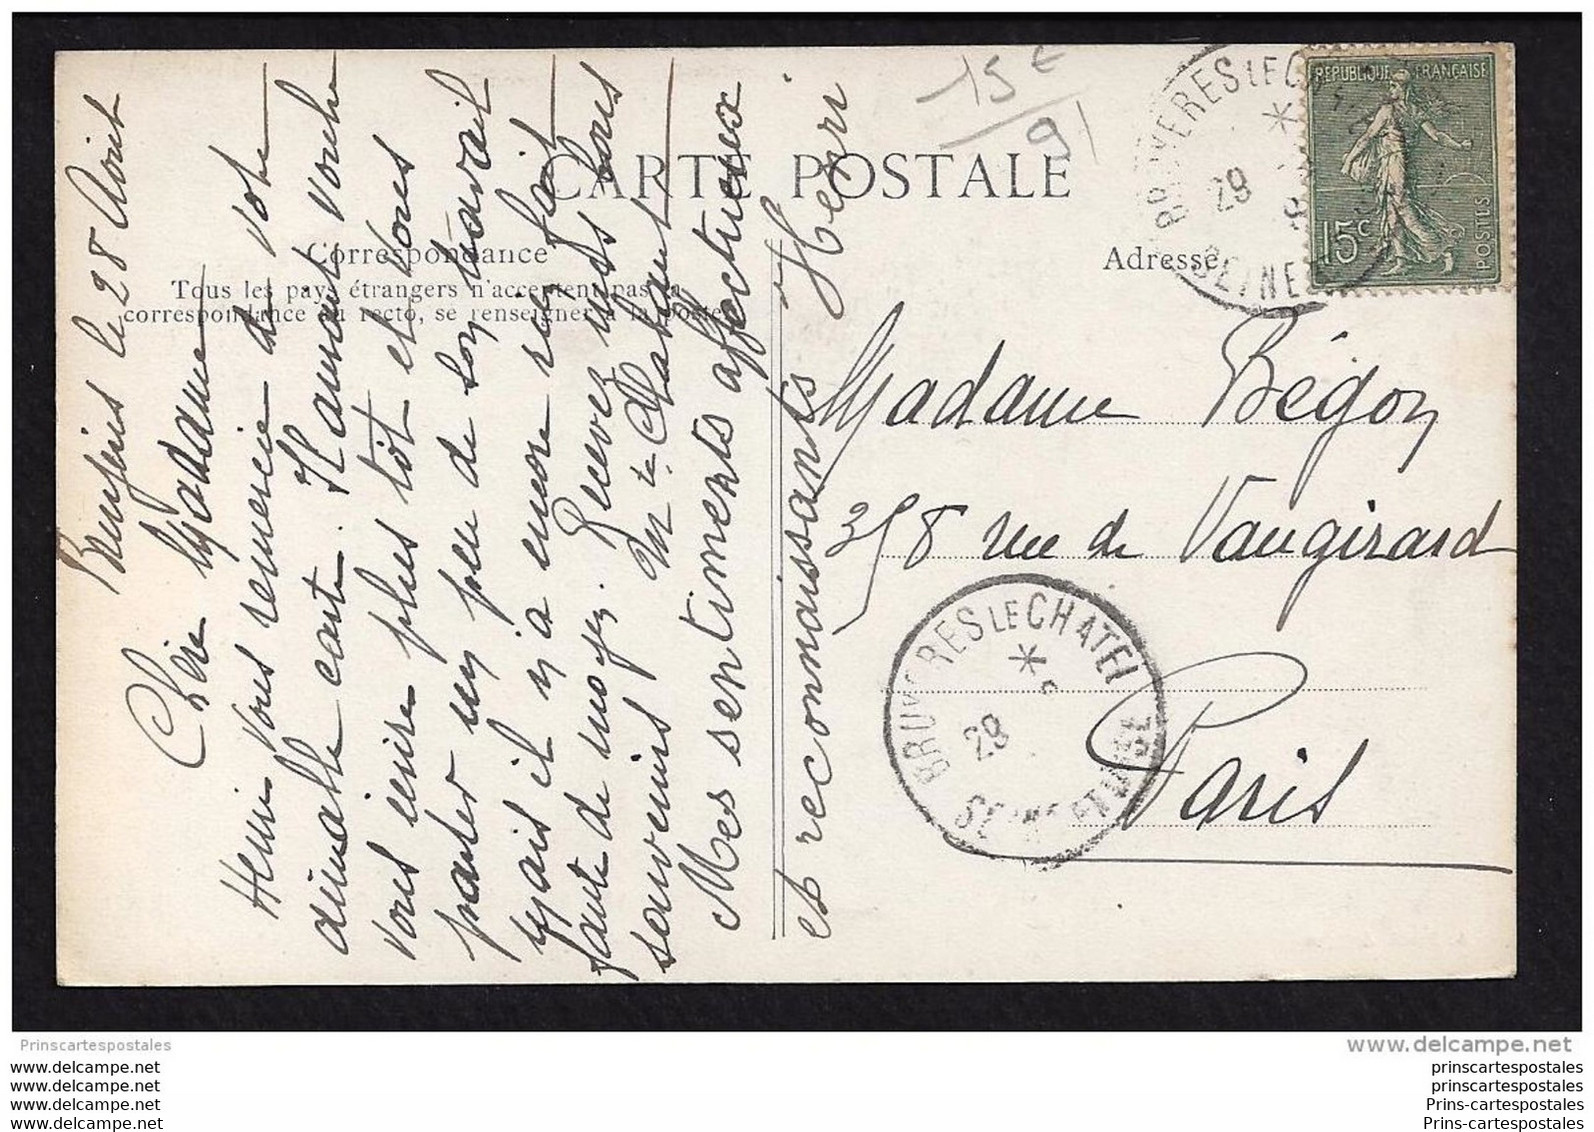 15 €
91
CARTE POSTALE
Correspondance
Tous les pays étrangers n'acceptent pas la
correspondance au recto, se renseigner à la Poste.
Adresse
REPUBLIQUE FRANÇAISE
15c
POSTES
BRUYERES LE C
29
8
SEINE
le 28 Août
Chère Madame
Henri vous remercie de votre
aimable carte. Il aurait voulu
vous écrire plus tôt et vous
parler un peu de son travail
mais il n'y a encore rien fait
faute de moyen. Recevez mes bons
souvenirs
Mes sentiments affectueux
et reconnaissants Henri
Madame Bégon
358 rue de Vaugirard
Paris
BRUYERES LE CHATEL
29
SEINE ET OISE
Prinscartespostales
www.delcampe.net
www.delcampe.net
www.delcampe.net
www.delcampe.net
www.delcampe.net
prinscartespostales
prinscartespostales
Prins-cartespostales
Prins-cartespostales